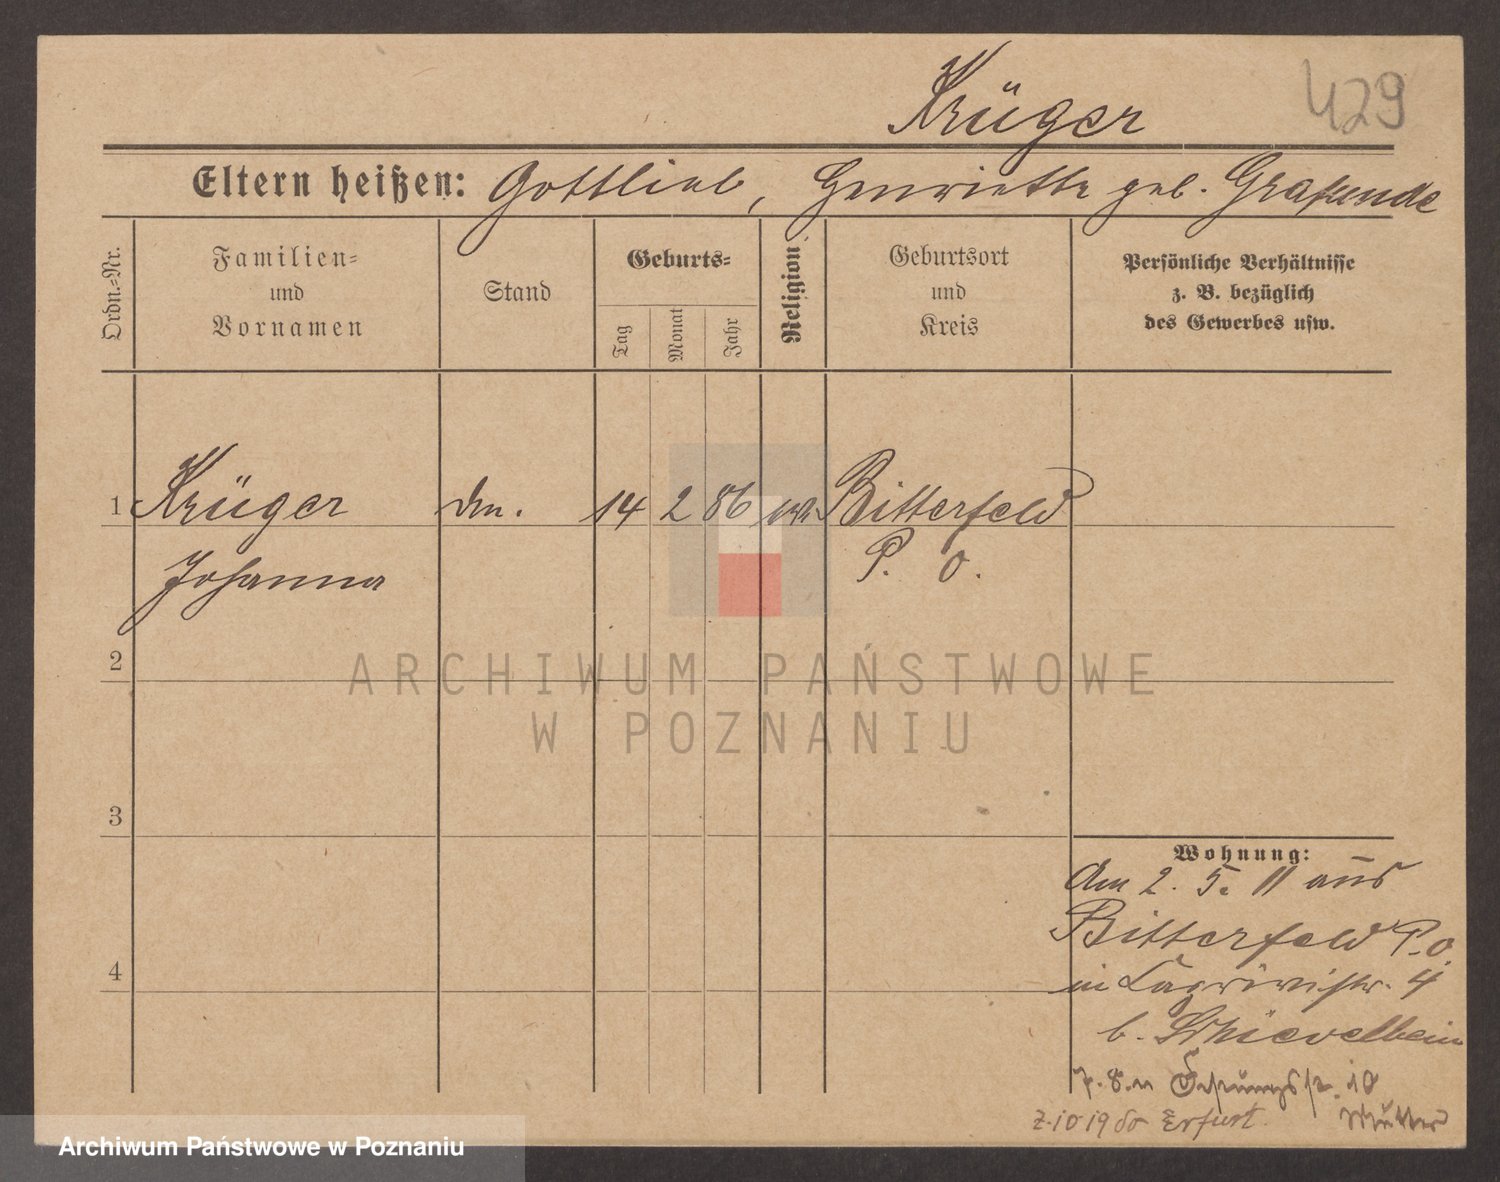 429
Krüger
Eltern heißen: Gottlieb, Henriette geb. Grafunde
Ordn.-Nr.
Familien-
und
Vornamen
Stand
Geburts-
Tag
Monat
Jahr
Religion
Geburtsort
und
Kreis
Persönliche Verhältnisse
z. B. bezüglich
des Gewerbes usw.
1 Krüger 14 2 86 Bitterfeld
Johanna P. O.
2
ARCHIWUM PAŃSTWOWE
W POZNANIU
3
4
Wohnung:
Am 2. 5. 11 aus
Bitterfeld P. O.
in 4
b. Schievelbein
10
Erfurt.
Archiwum Państwowe w Poznaniu